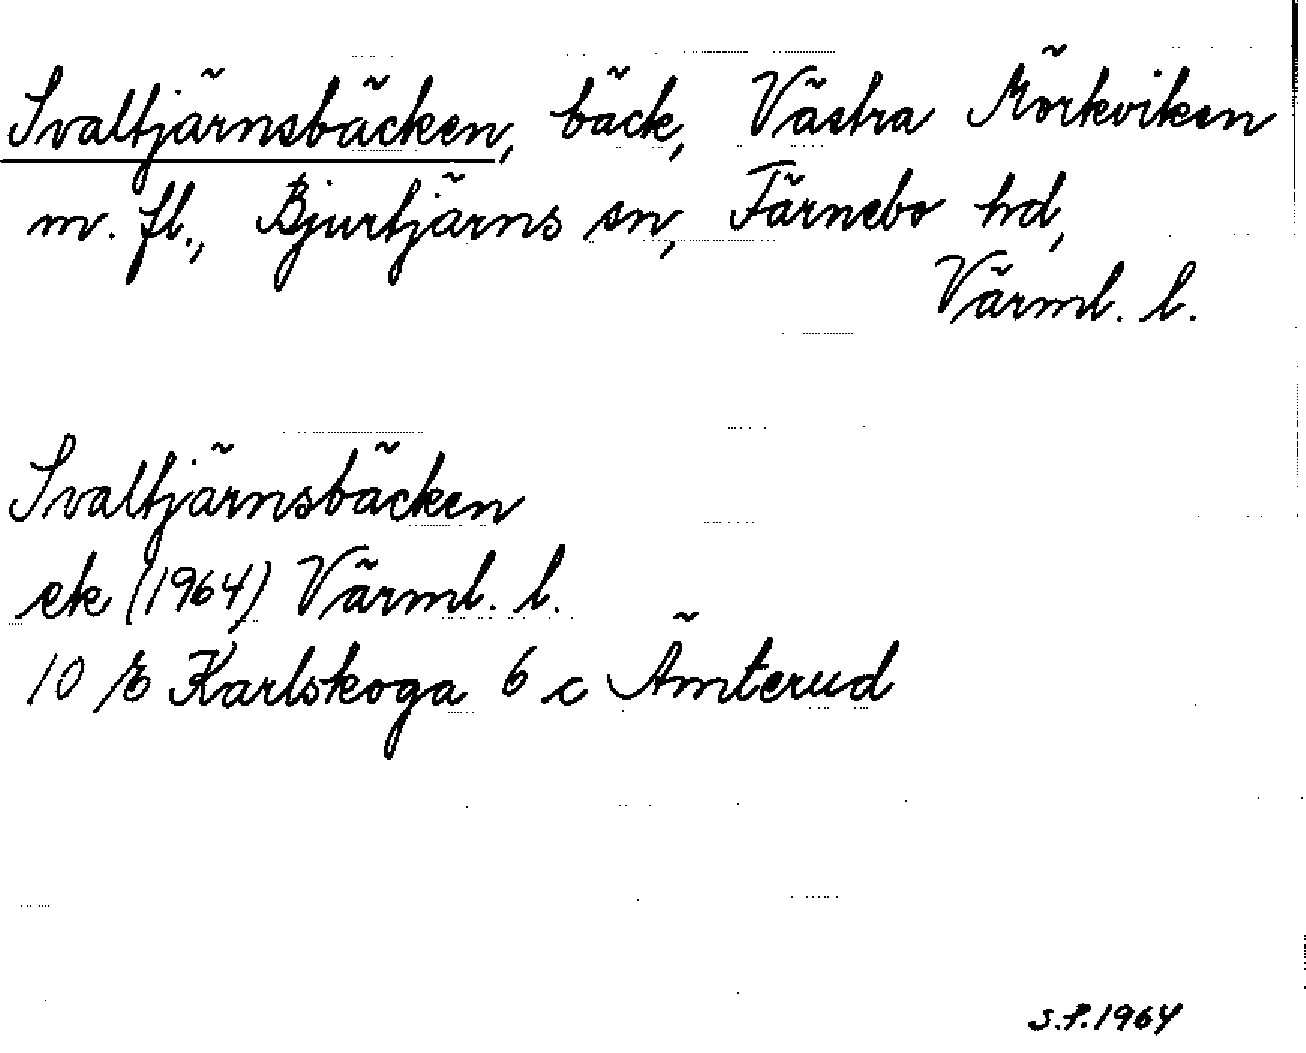 Svaltjärnsbäcken, bäck, Västra Mörkviken
m. fl., Bjurtjärns sn, Färnebo hd,
Värml. l.
Svaltjärnsbäcken
ek (1964) Värml. l.
10 E Karlskoga 6 c Ämterud
S.P. 1964